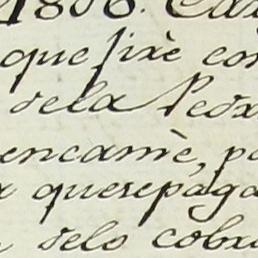 1806. Ca
que fixè co
dela Pedr
encamè, p
querepaga
delo cobr